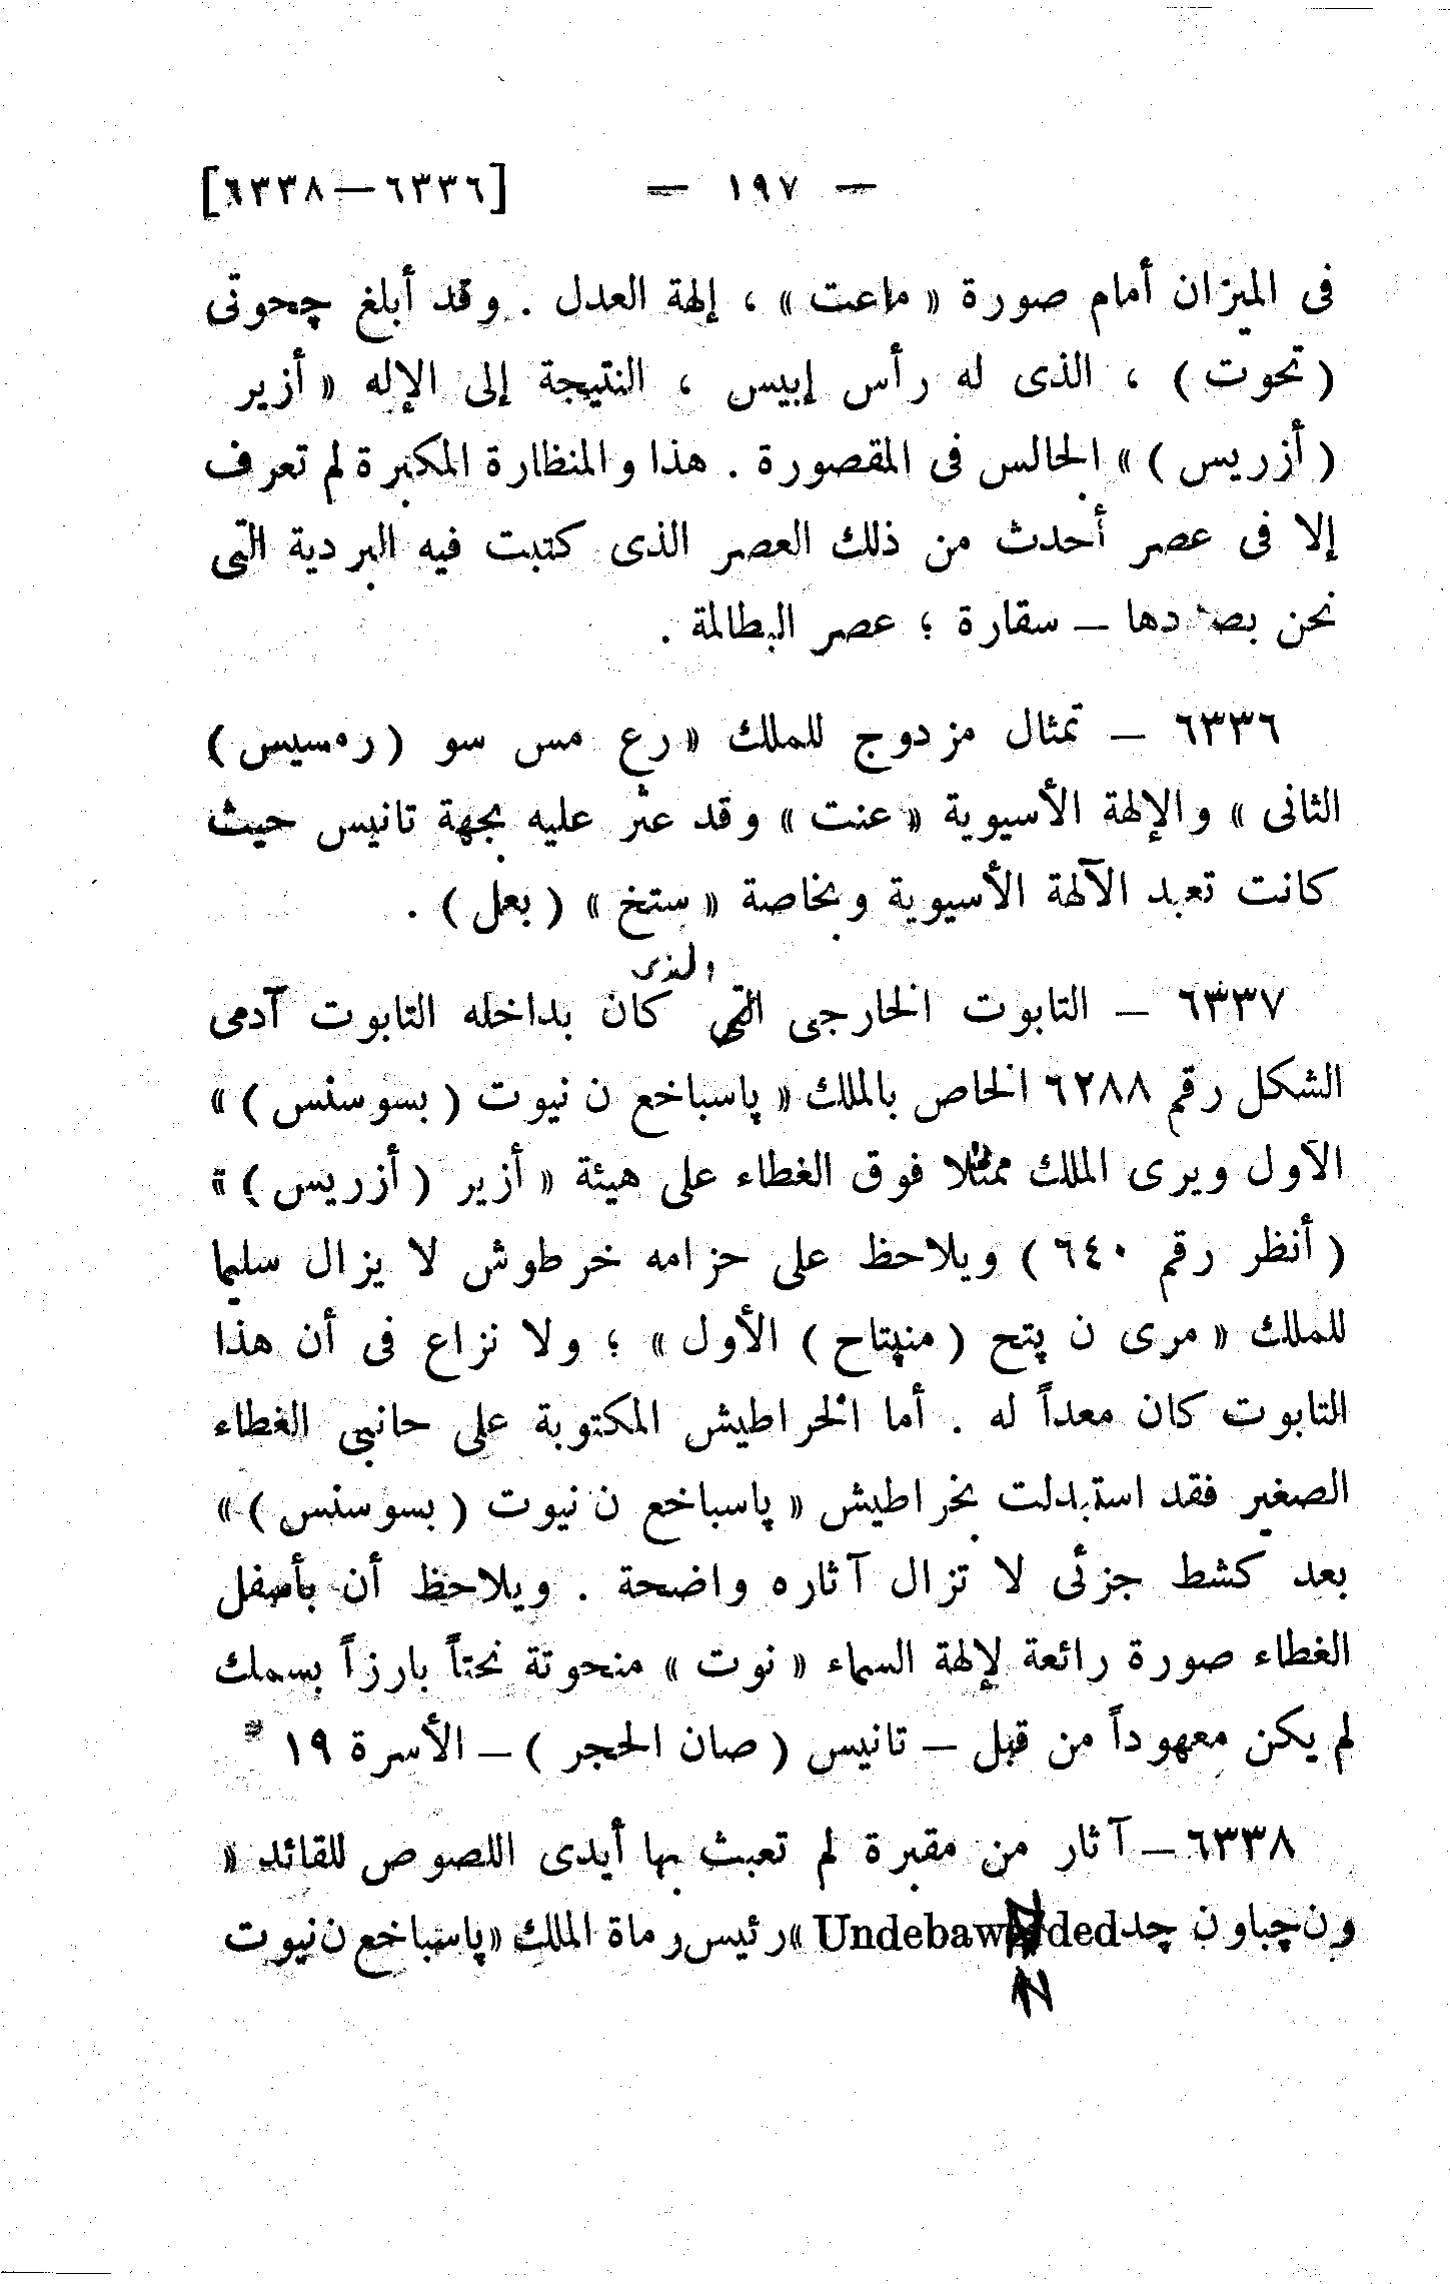 — ١٩٧ — [٦٣٣٦—٦٣٣٨]
فى الميزان أمام صورة « ماعت » ، إلهة العدل . وقد أبلغ چحوتى
( تحوت ) ، الذى له رأس إبيس ، النتيجة إلى الإله « أزير
( أزريس ) » الحالس فى المقصورة . هذا والمنظارة المكبرة لم تعرف
إلا فى عصر أحدث من ذلك العصر الذى كتبت فيه البردية التى
نحن بصددها — سقارة ؛ عصر البطالمة .
٦٣٣٦ — تمثال مزدوج للملك « رع مس سو ( رمسيس )
الثانى » والإلهة الأسيوية « عنت » وقد عثر عليه بجهة تانيس حيث
كانت تعبد الآلهة الأسيوية وبخاصة « ستخ » ( بعل ) .
والذى
٦٣٣٧ — التابوت الخارجى التى كان بداخله التابوت آدمى
الشكل رقم ٦٢٨٨ الخاص بالملك « پاسباخع ن نيوت ( بسوسنس ) »
الأول ويرى الملك ممثلا فوق الغطاء على هيئة « أزير ( أزريس ) »
( أنظر رقم ٦٤٠ ) ويلاحظ على حزامه خرطوش لا يزال سليما
للملك « مرى ن پتح ( منپتاح ) الأول » ؛ ولا نزاع فى أن هذا
التابوت كان معداً له . أما الخراطيش المكتوبة على حانبى الغطاء
الصغير فقد استبدلت بخراطيش « پاسباخع ن نيوت ( بسوسنس ) »
بعد كشط جزئى لا تزال آثاره واضحة . ويلاحظ أن بأسفل
الغطاء صورة رائعة لإلهة السماء « نوت » منحوتة نحتاً بارزاً بسمك
لم يكن معهوداً من قبل — تانيس ( صان الحجر ) — الأسرة ١٩
٦٣٣٨ — آثار من مقبرة لم تعبث بها أيدى اللصوص للقائد «
ون چباون چد Undebawnded » رئيس رماة الملك « پاسباخع ن نيوت
N